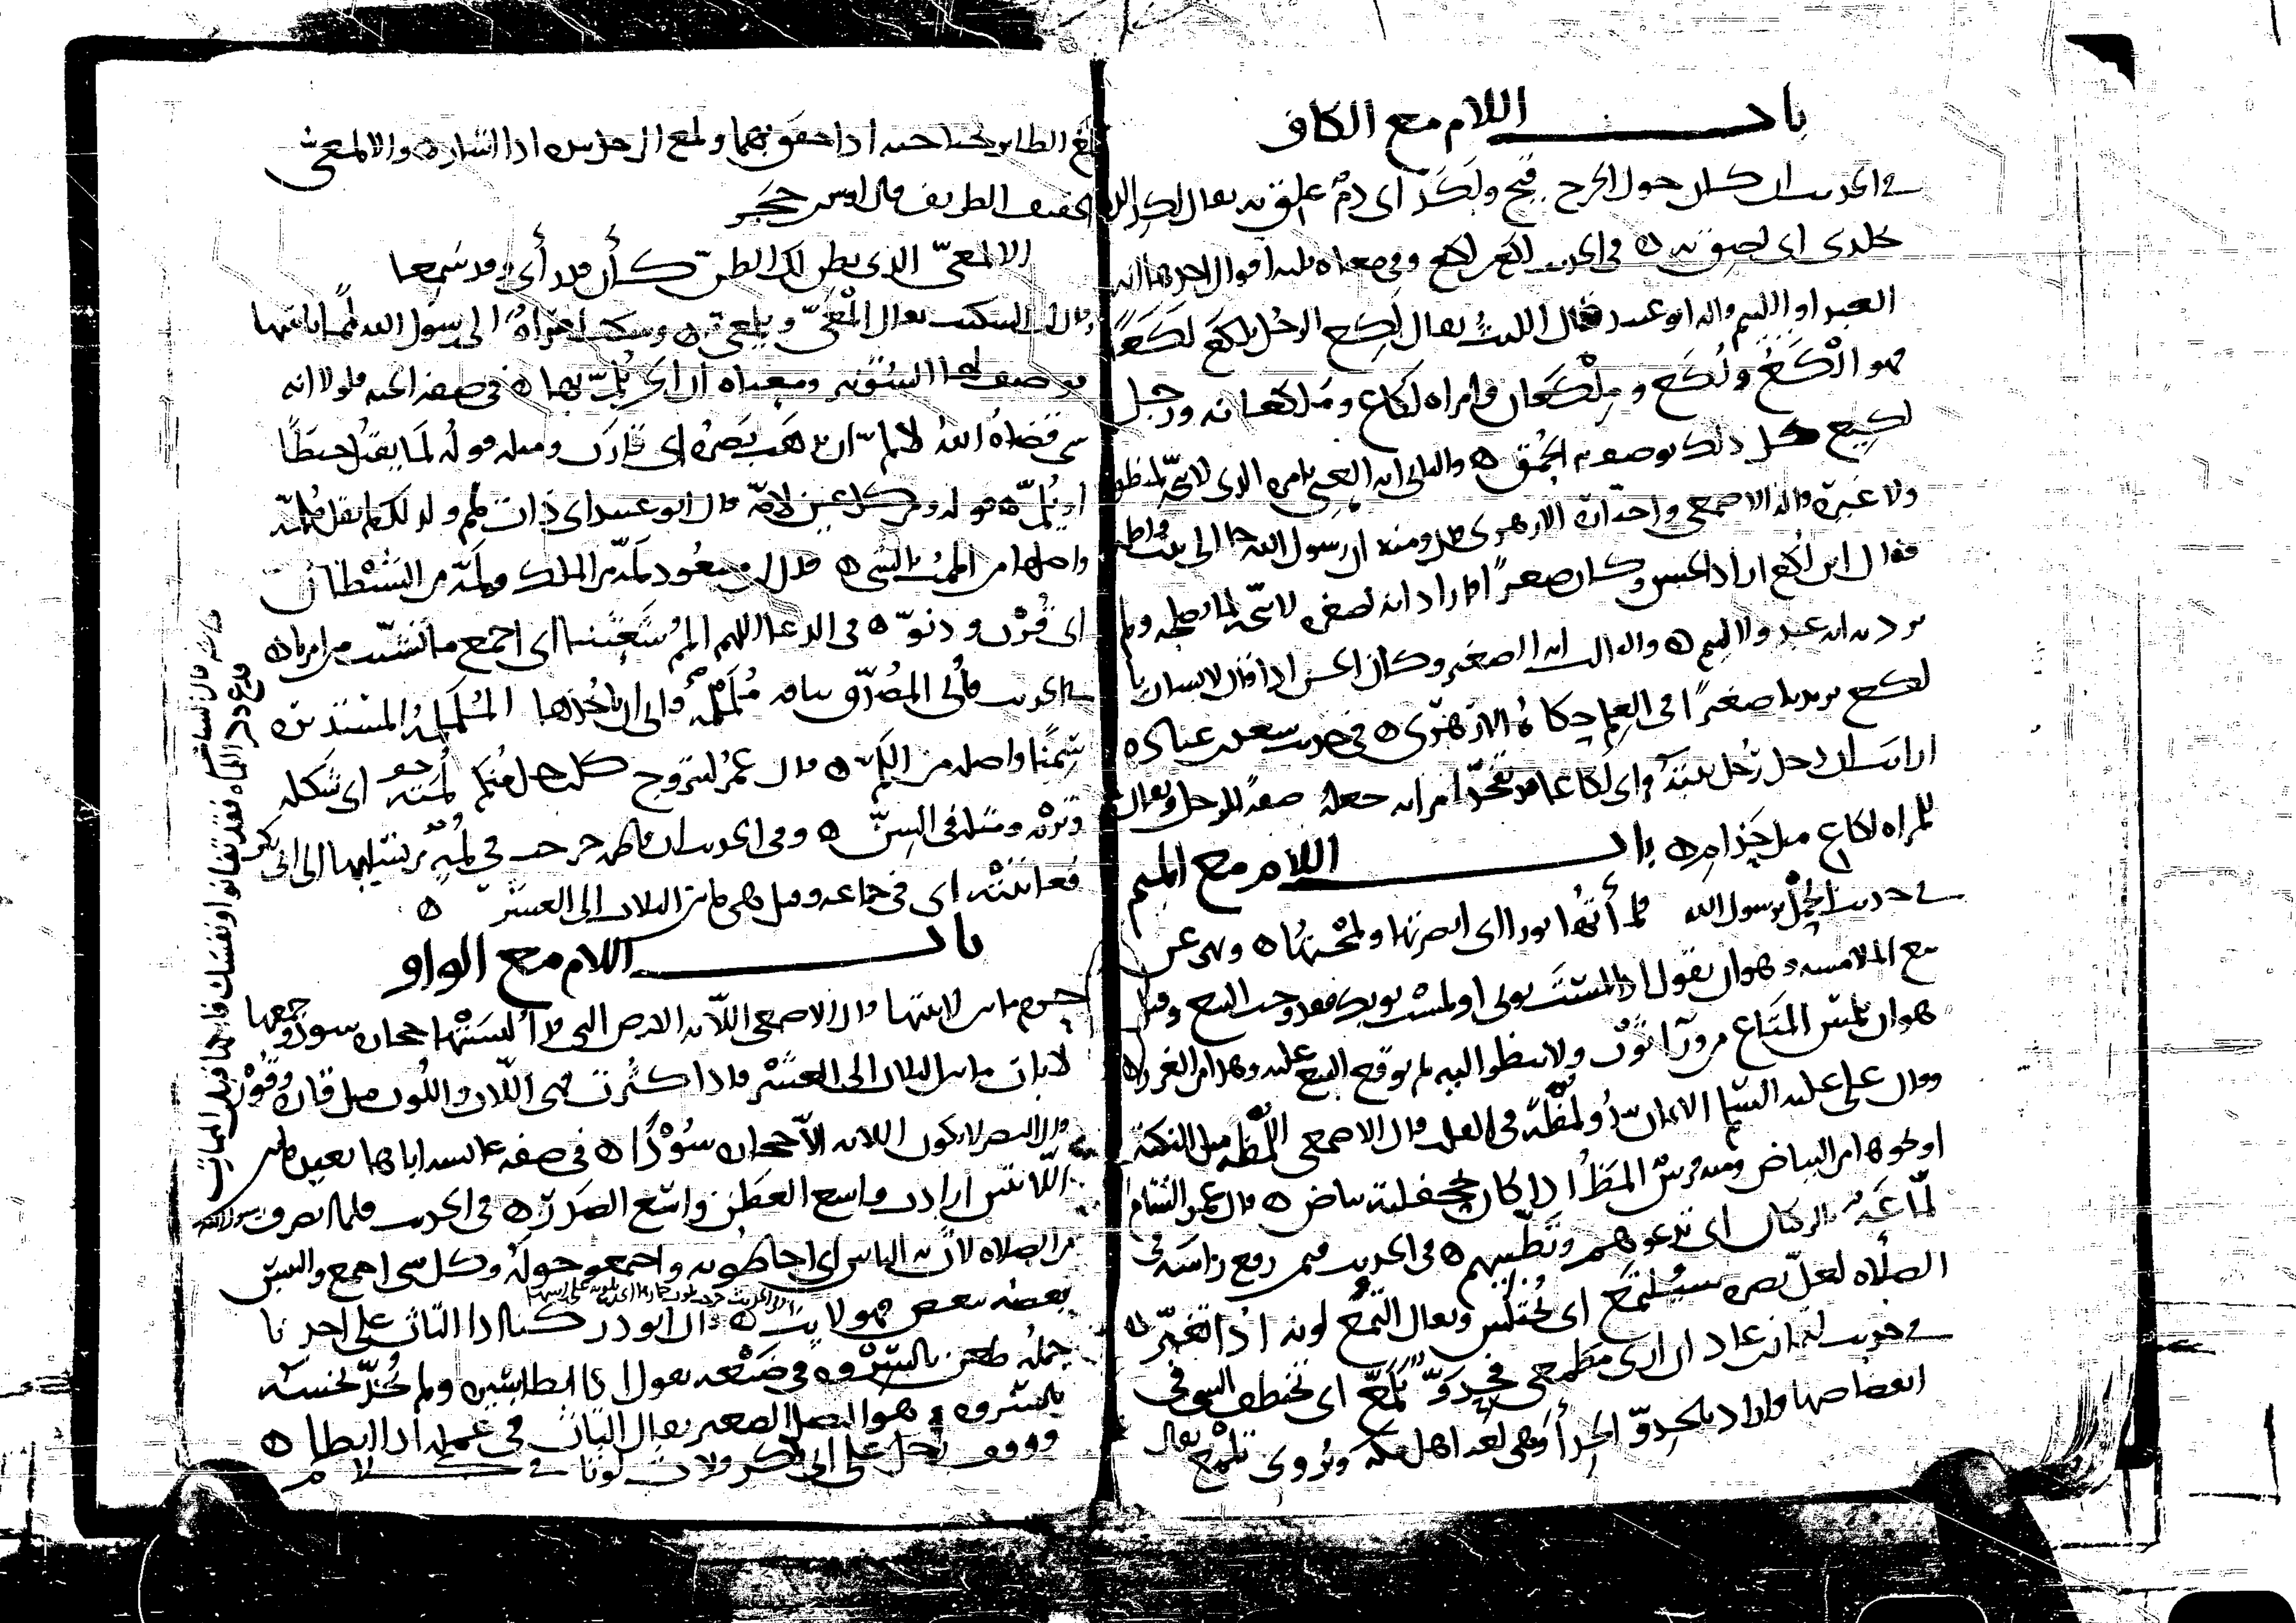 باب اللام مع الكاف
في الحديث اذا كان حول الجرح قيح ولكد اى دم علق به يقال لكد الدم
بجلدى اى لصق به ه في الحديث لكع بن لكع وفي معناه ثلثة اقوال احدها انه
العبد او اللئيم قاله ابو عبيد وقال الليث يقال لكع الرجل يلكع لكعا
فهو الكع ولكع وملكعان وامراه لكاع وملكعانه ورجل
لكيع كل ذلك يوصف به الحمق ه والثاني انه العيى بامره الذى لا يتجه لمنطق
ولا غيره قاله الاصمعى واختاره الازهرى ومنه ان رسول الله جا الى بيت فاطمه
فقال اين لكع اراد الحسن وكان صغيرا اراد انه لصغره لا يتجه لما يصلحه ولم
يرد به انه عبد ولا لئيم ه والثالث انه الصغير وكان الحسن اذا قال لانسان يا
لكع يريد يا صغيرا في العلم حكاه الازهرى ه في حديث سعد بن عباده
ارايت ان دخل رجل بيته فراى لكاعا قد تفخذ امراته جعله صفة للرجل ويقال
للمراه لكاع مثل حذام ه باب اللام مع الميم
في حديث الحمل برسول الله فلمأتها نورا اى ابصرتها ولمحتها ه ونهى عن
بيع الملامسه وهو ان يقول اذا لمست ثوبى او لمست ثوبك فقد وجب البيع وقيل
هو ان يلمس المتاع من ورآ ثوب ولا ينظر اليه ثم يوقع البيع عليه وهذا من الغرر ه
وقال على عليه السلم الايمان يبدو لمظة في القلب قال الاصمعى اللمظه مثل النكتة
او نحوها من البياض ومنه فرس المظ اذا كان بجحفلته بياض ه قال عمر الشام
لماعة بالركبان اى تدعوهم وتطبيهم ه في الحديث فيمن رفع راسه في
الصلاه لعل بصره سيلتمع اى يختلس ويقال التمع لونه اذا تغير ه
في حديث لقمان بن عاد ان ارى مطمعى فحدو تلمع اى تختطف الشى في
انقضاضها واراد بالحدو الحدأ وهى لغة اهل مكة ويروى تلمع يقال
لمع الطاير بجناحيه اذا خفق بهما ولمع الرجل بيده اذا اشار ه والالمعى
الخفيف الظريف قال اوس بن حجر
الالمعى الذى يظن لك الظن كأن قد رأى وقد سمعا
وقال ابن السكيت يقال المعى ويلمعى ه وشكت امراه الى رسول الله لمما بابنتها
فوصف لها الشونيز ومعناه ان الجن تلم بها ه في صفه الجنه فلولا انه
شى قضاه الله لالم ان يذهب بصره اى قارب ومثله قوله لما يقتل حبطا
او يلم ه قوله ومن كل عين لامة قال ابو عبيد اى ذات لمم ولذلك لم يقل ملمة
واصلها من الممت بالشى ه قال ابن مسعود لمة من الملك ولمة من الشيطان
اى قرب ودنو ه في الدعا اللهم المم شعثنا اى اجمع ما تشتت من امرنا ه
في الحديث فاتى المصدق بناقه ململمه فابى ان ياخذها الململمة المستديرة
سمنا واصله من اللم ه قال عمر ليتزوج كل رجل منكم لمته اى شكله
وتربه ومثله في السن ه وفى الحديث ان فاطمه خرجت في لمة من نسايها الى ابى بكر
فعاتبته اى في جماعه وقيل هى ما بين الثلاث الى العشر ه
باب اللام مع الواو
حرم ما بين لابتيها قال الاصمعى اللابه الارض التى قد البستها حجاره سود وجمعها
لابات ما بين الثلاث الى العشر فاذا كثرت فهى اللاب واللوب مثل قارة وقور
قال النضر لا تكون اللابه الا حجاره سودا ه في صفة عائشه اباها بعيد ما بين
اللابتين ارادت واسع العطن واسع الصدر ه في الحديث فلما انصرف رسول الله
من الصلاه لاث به الناس اى احاطوا به واجتمعوا حوله وكل شى اجتمع والتبس
بعضه ببعض فهو لايث ه قال ابو ذر كنا اذا التاث على احدنا
جمله طعن بالسروه في ضبعه يقول اذا ابطا سيره ولم يجد نخسه
بالسروه وهو النصل الصغير يقال التاث في عمله اذا ابطا ه
ووقف رجل على ابى بكر فلاث لوثا في كلام